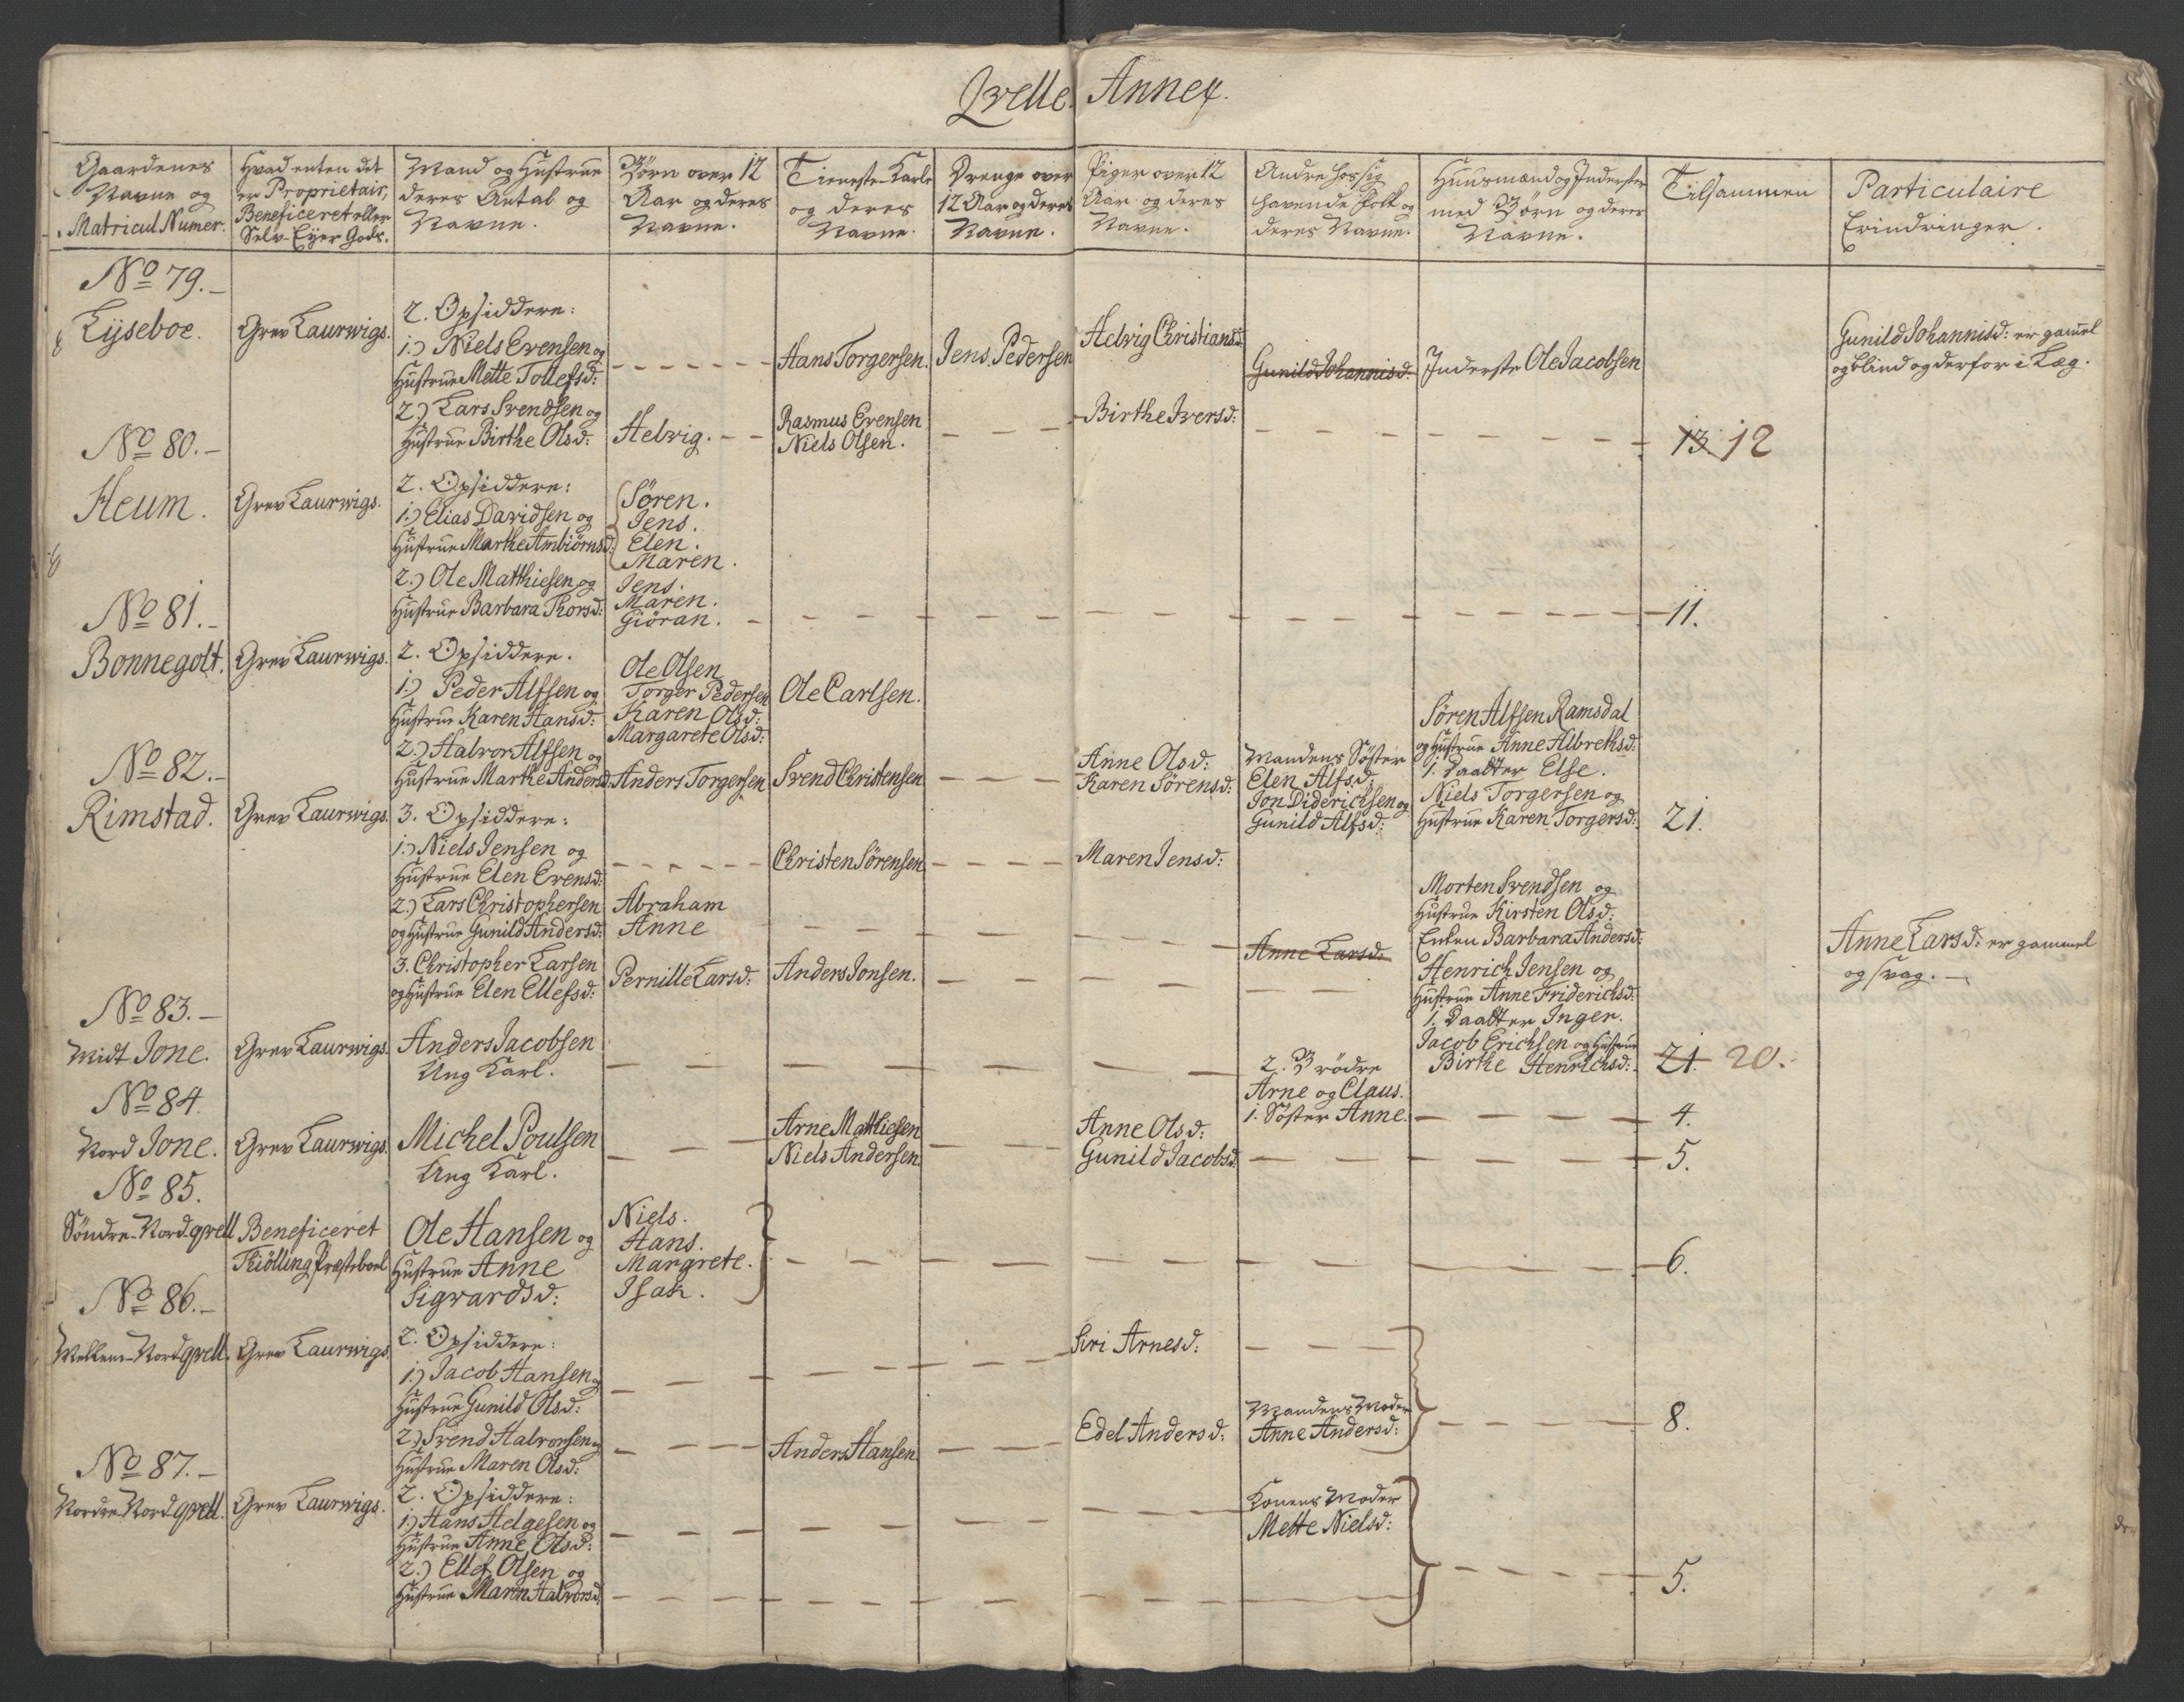 Qvelle Annex.
Gaardenes
Navne og
Matricul Numer.
Hvad enten det
er Proprietair,
Beneficeret eller
Selv-Eyer Gods.
Mand og Hustrue
deres Antal og
Navne.
Børn over 12
Aar og deres
Navne.
Tieneste Karle
og deres
Navne.
Drenge over
12 Aar og deres
Navne.
Piger over 12
Aar og deres
Navne.
Andre hos sig
havende Folk og
deres Navne.
Huusmænd og Inderster
med Børn og deres
Navne.
Tilsammen
Particulaire
Erindringer.
No 79.
Lÿseboe.
Grev Laurwigs.
2. Opsiddere:
1.) Niels Evensen og
Hustrue Mette Tollefsd:
Hans Torgersen.
Jens Pedersen
Helvig Christiansd:
Gunild Johannisd:
Inderste Ole Jacobsen
Gunild Johannisd: er gamel
og blind og derfor i Læg.
2.) Lars Svendsen og
Hustrue Birthe Olsd:
Helvig.
Rasmus Evensen
Niels Olsen.
Birthe Iversd:
13. 12
No 80.
Heum.
Grev Laurwigs.
2. Opsiddere:
1.) Elias Davidsen og
Hustrue Marthe Ambiørnsd:
Søren.
Jens.
Elen.
Maren.
2.) Ole Matthiesen og
Hustrue Barbara Thorsd:
Jens.
Maren.
Giøran.
11.
No 81.
Bonnegolt.
Grev Laurwigs.
2. Opsiddere.
1.) Peder Alfsen og
Hustrue Karen Hansd:
Ole Olsen
Torger Pedersen
Karen Olsd:
Margarete Olsd:
Ole Carlsen.
2.) Halvor Alfsen og
Hustrue Marthe Andersd:
Anders Torgersen
Svend Christensen
Anne Olsd:
Karen Sørensd:
Mandens Søster
Elen Alfsd:
Jon Diderichsen og
Gunild Alfsd:
Søren Alfsen Ramsdal
og Hustrue Anne Albrethsd:
1. Daatter Else.
Niels Torgersen og
Hustrue Karen Torgersd:
21.
No 82.
Rimstad.
Grev Laurwigs.
3. Opsiddere:
1.) Niels Jensen og
Hustrue Elen Evensd:
Christen Sørensen
Maren Jensd:
2.) Lars Christophersen
og Hustrue Gunild Andersd:
Abraham
Anne
Anne Larsd:
3. Christopher Larsen
og Hustrue Elen Ellefsd:
Pernille Larsd:
Anders Jonsen.
Morten Svendsen og
Hustrue Kirsten Olsd:
Enken Barbara Andersd:
Henrich Jensen og
Hustrue Anne Friderichsd:
1. Daatter Inger.
Jacob Erichsen og Hustrue
Birthe Henrichsd:
21. 20.
Anne Larsd: er gammel
og svag.
No 83.
Midt Jone.
Grev Laurwigs.
Anders Jacobsen
Ung Karl.
2. Brödre
Arne og Claus.
1. Søster Anne.
4.
No 84.
Nord Jone.
Grev Laurwigs.
Michel Poulsen
Ung Karl.
Arne Matthiesen
Niels Andersen
Anne Olsd:
Gunild Jacobsd:
5.
No 85.
Söndre-Nordqvell
Beneficeret
Thiölling Præsteboel
Ole Hansen og
Hustrue Anne
Sigvardsd:
Niels.
Hans.
Margrete.
Isak.
6.
No 86.
Mellem-Nordqvell.
Grev Laurwigs.
2. Opsiddere:
1.) Jacob Hansen og
Hustrue Gunild Olsd:
Siri Arnesd:
2.) Svend Halvorsen og
Hustrue Maren Olsd:
Anders Hansen
Edel Andersd:
Mandens Moder
Anne Andersd:
8.
No 87.
Nordre-Nordqvell.
Grev Laurwigs.
2. Opsiddere:
1.) Hans Helgesen og
Hustrue Anne Olsd:
2.) Ellef Olsen og
Hustrue Maren Halvorsd:
Konens Moder
Mette Nielsd:
5.